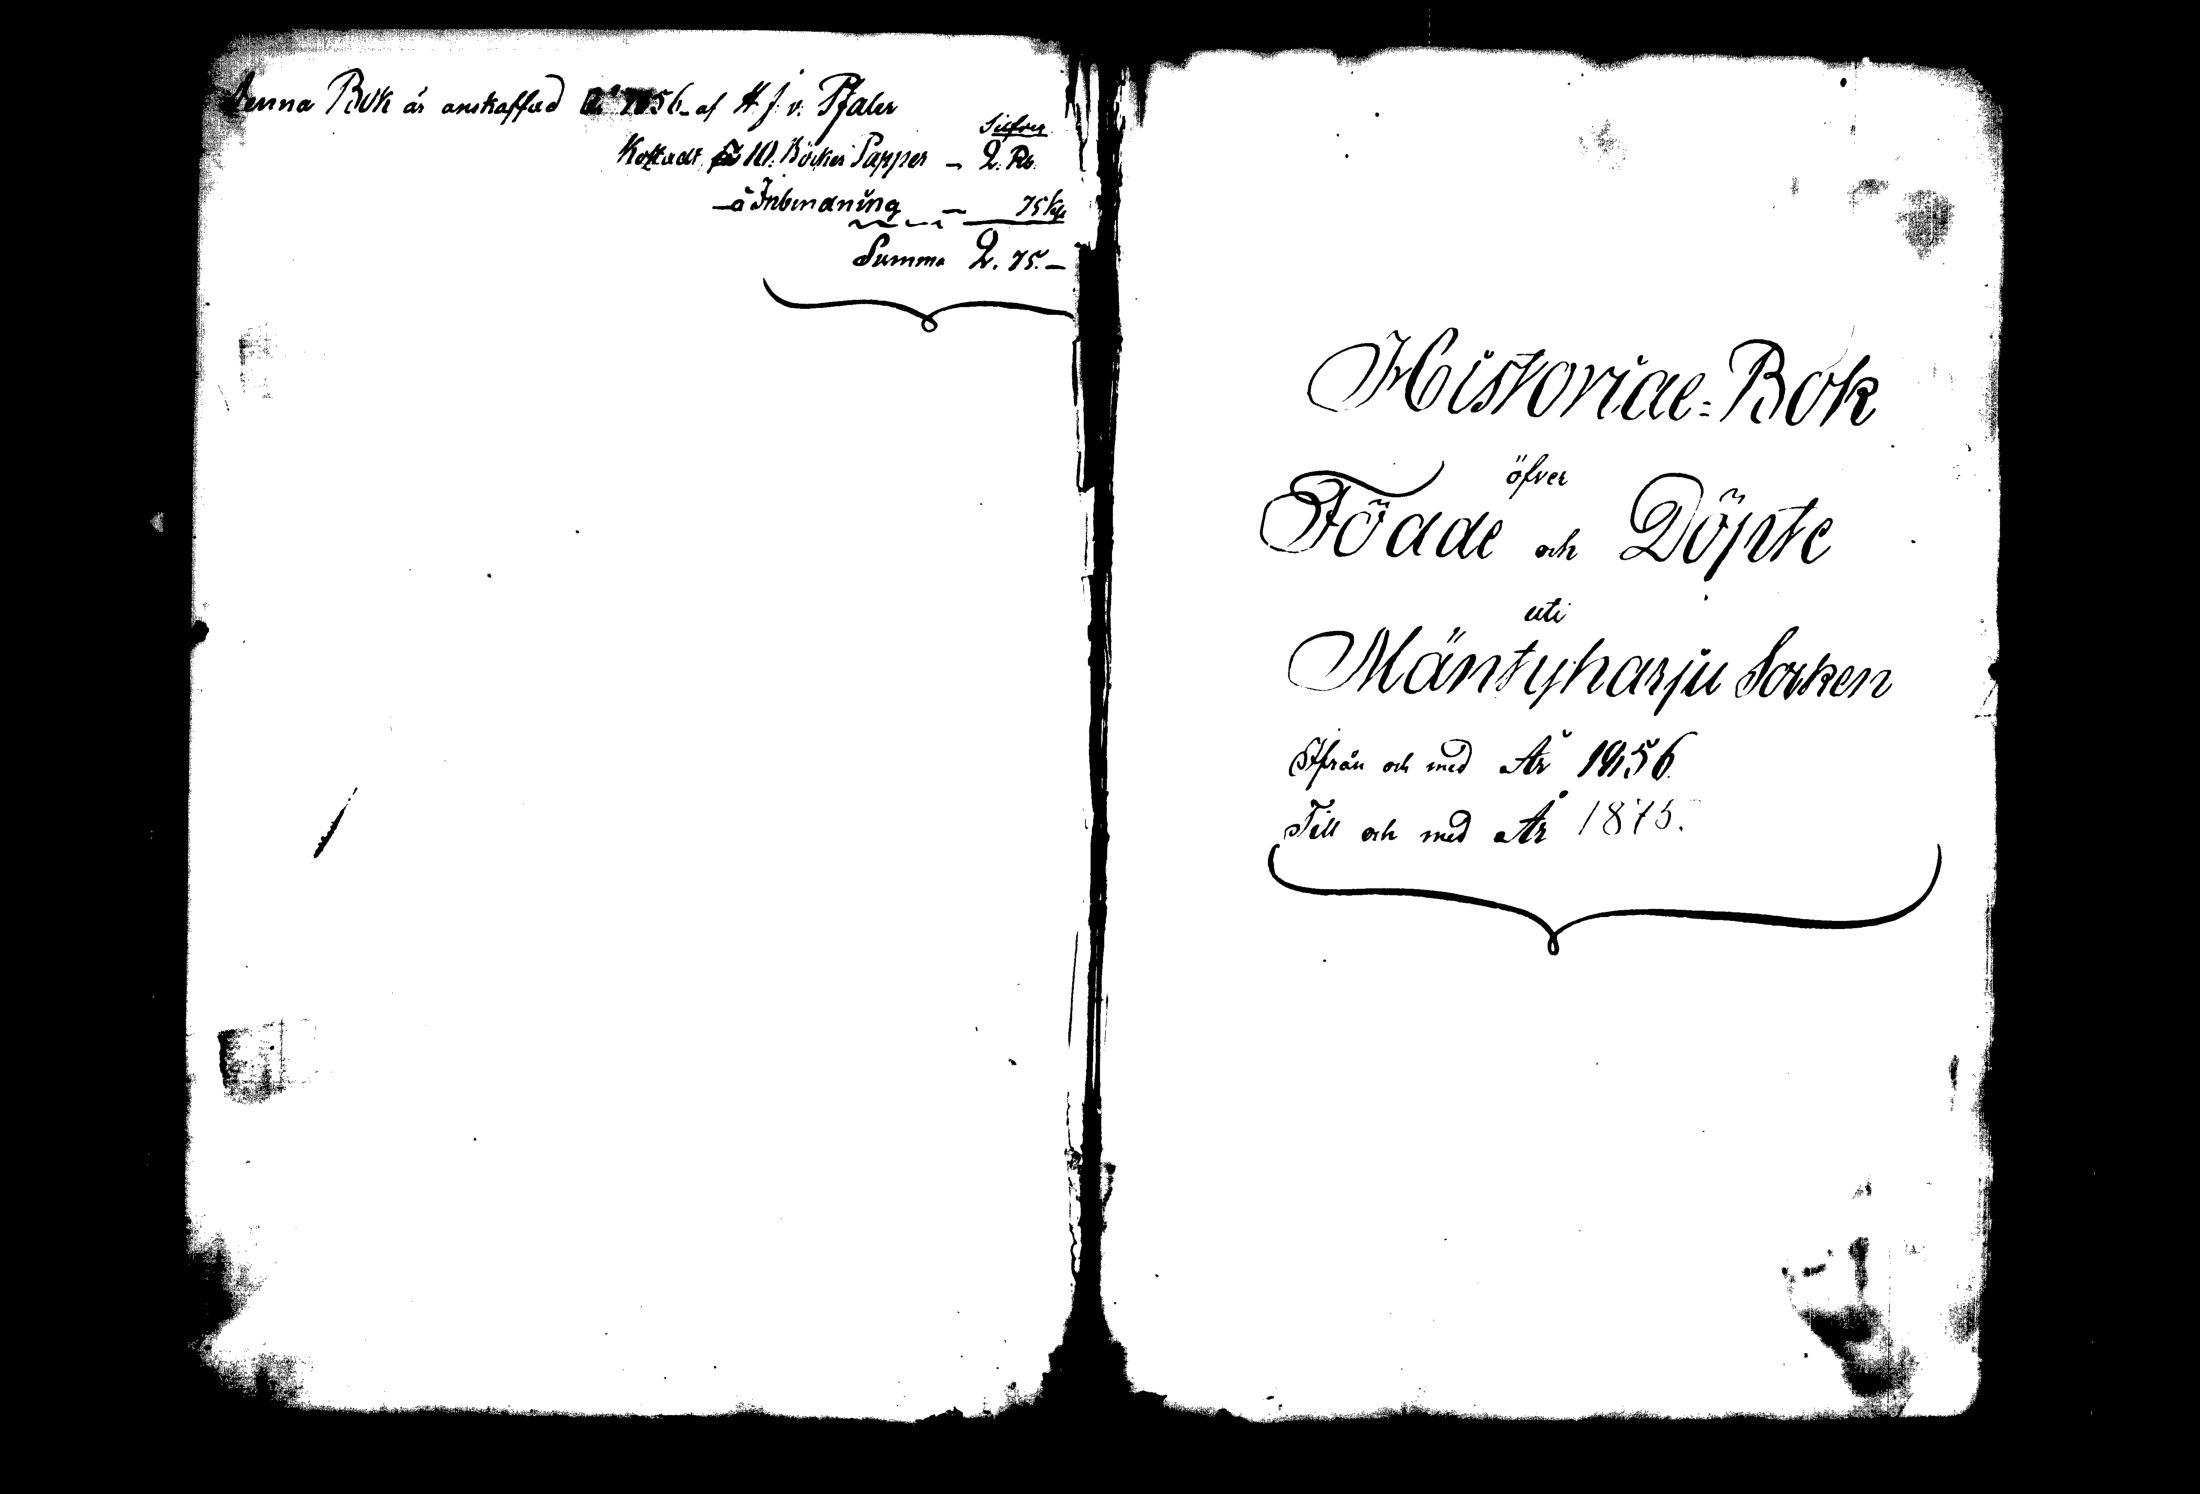 Denna Bok är anskaffad År 1856 af H. J. v. Pfaler
Silfver
Kostadt på 10. Böcker Papper — 2. Rb.
— å Inbindning — 75 kp
Summa 2. 75. —
Historiae-Bok
öfver
Födde och Döpte
uti
Mäntyharju Socken
Ifrån och med År 1856.
Till och med År 1875.